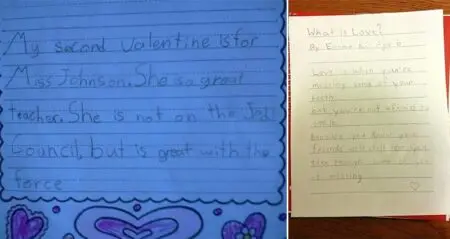 My second valentine is for
Miss Johnson. She is a great
teacher. She is not on the Jedi
Council, but is great with the
force
What is Love?
By Emma K. Age 6
Love is when you're
missing some of your
teeth
but you're not afraid to
smile
Because you know your
friends will still love you
even though some of you
is missing